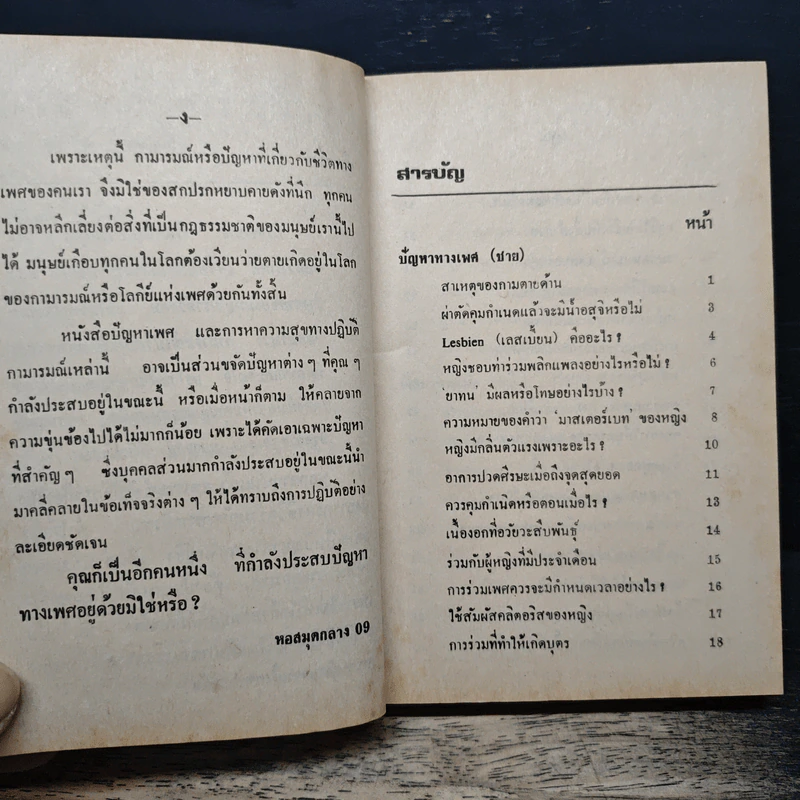 —ง—
เพราะเหตุนี้ กามารมณ์หรือปัญหาที่เกี่ยวกับชีวิตทาง
เพศของคนเรา จึงมิใช่ของสกปรกหยาบคายดังที่นึก ทุกคน
ไม่อาจหลีกเลี่ยงต่อสิ่งที่เป็นกฎธรรมชาติของมนุษย์เรานี้ไป
ได้ มนุษย์เกือบทุกคนในโลกต้องเวียนว่ายตายเกิดอยู่ในโลก
ของกามารมณ์หรือโลกีย์แห่งเพศด้วยกันทั้งสิ้น
หนังสือปัญหาเพศ และการหาความสุขทางปฏิบัติ
กามารมณ์เหล่านี้ อาจเป็นส่วนขจัดปัญหาต่าง ๆ ที่คุณ ๆ
กำลังประสบอยู่ในขณะนี้ หรือเมื่อหน้าก็ตาม ให้คลายจาก
ความขุ่นข้องไปได้ไม่มากก็น้อย เพราะได้คัดเอาเฉพาะปัญหา
ที่สำคัญ ๆ ซึ่งบุคคลส่วนมากกำลังประสบอยู่ในขณะนี้นำ
มาคลี่คลายในข้อเท็จจริงต่าง ๆ ให้ได้ทราบถึงการปฏิบัติอย่าง
ละเอียดชัดเจน
คุณก็เป็นอีกคนหนึ่ง ที่กำลังประสบปัญหา
ทางเพศอยู่ด้วยมิใช่หรือ ?
หอสมุดกลาง 09
สารบัญ
หน้า
ปัญหาทางเพศ (ชาย)
สาเหตุของกามตายด้าน 1
ผ่าตัดคุมกำเนิดแล้วจะมีน้ำอสุจิหรือไม่ 3
Lesbien (เลสเบี้ยน) คืออะไร ? 4
หญิงชอบท่าร่วมพลิกแพลงอย่างไรหรือไม่ ? 6
'ยาทน' มีผลหรือโทษอย่างไรบ้าง ? 7
ความหมายของคำว่า 'มาสเตอร์เบท' ของหญิง 8
หญิงมีกลิ่นตัวแรงเพราะอะไร ? 10
อาการปวดศีรษะเมื่อถึงจุดสุดยอด 11
ควรคุมกำเนิดหรือตอนเมื่อไร ? 13
เนื้องอกที่อวัยวะสืบพันธุ์ 14
ร่วมกับผู้หญิงที่มีประจำเดือน 15
การร่วมเพศควรจะมีกำหนดเวลาอย่างไร ? 16
ใช้สัมผัสคลิตอริสของหญิง 17
การร่วมที่ทำให้เกิดบุตร 18